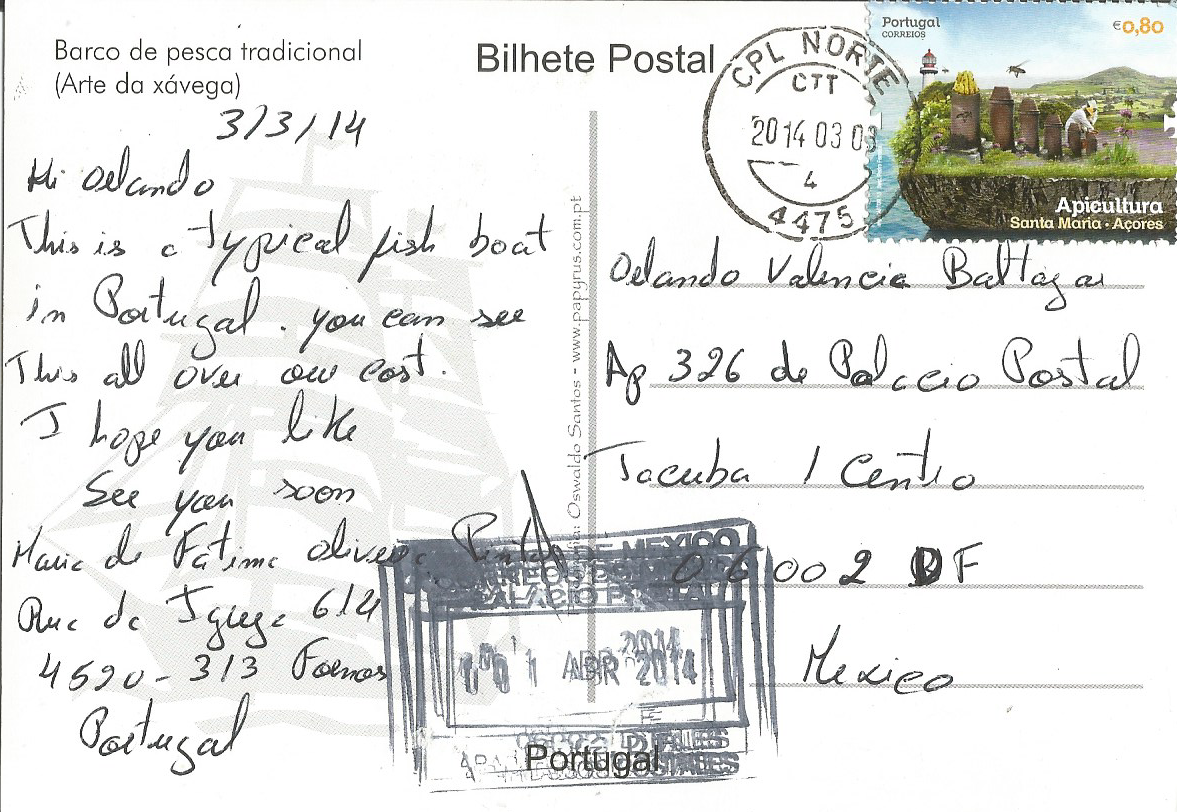 Barco de pesca tradicional
(Arte da xávega)
Bilhete Postal
3/3/14
Hi Orlando
This is a typical fish boat
in Portugal. you can see
This all over our cost.
I hope you like
See you soon
Maria de Fátima Oliveira Pinto
Rua da Igreja 614
4520-313 Fornos
Portugal
Oswaldo Santos - www.papyrus.com.pt
CPL NORTE
CTT
2014 03 03
4
4475
Portugal
CORREIOS
€0,80
Apicultura
Santa Maria • Açores
Orlando Valencia Baltazar
Ap 326 de Palacio Postal
Tacuba / Centro
06002 DF
Mexico
DE MEXICO
CORREOS DE MEXICO
PALACIO POSTAL
01 ABR 2014
Portugal